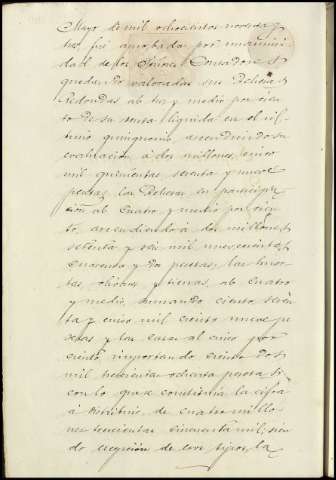 Mayo de mil ochocientos noventa y
tres, fué aprobada por unanimi-
dad de los Señores Contadores
quedando valoradas las Dehesas
Redondas al tres y medio por cien-
to de su renta líquida en el úl-
timo quinquenio, ascendiendo su
evaluación á dos millones, cinco
mil quinientas setenta y nueve
pesetas, las Dehesas en participa-
ción al cuatro y medio por cien-
to, ascendiendo á dos millones
setenta y seis mil novecientas
cuarenta y dos pesetas, las huer-
tas, olivos y tierras, al cuatro
y medio, sumando ciento sesen-
ta y cinco mil ciento nueve pe-
setas y las casas al cinco por
ciento importando ciento dos
mil trescientas ochenta pesetas
con lo que constituía la cifra
á distribuir de cuatro millo-
nes trescientas cincuenta mil, sien-
do excepción de esos tipos, la